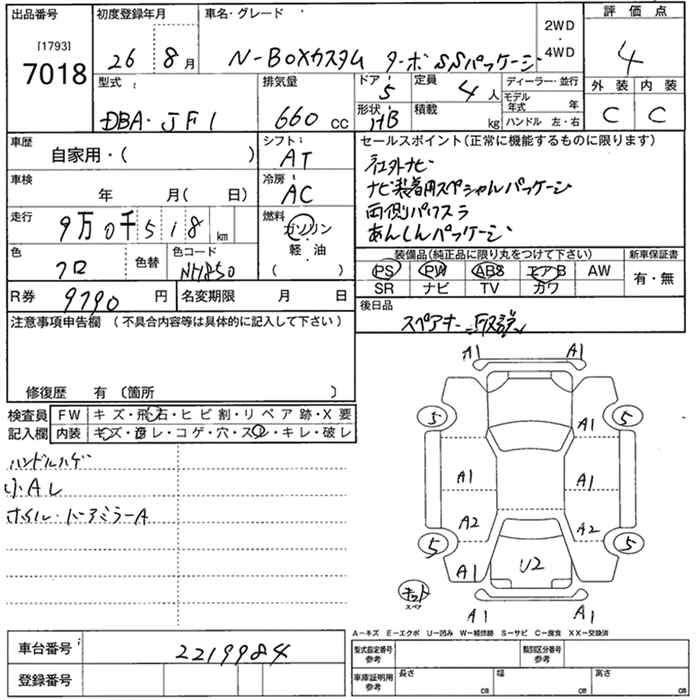 出品番号 初度登録年月 車名・グレード 評価点
[1793]
7018
26 8月 N-BOXカスタム ターボSSパッケージ
2WD・4WD
4
型式 排気量 ドア 定員 ディーラー・並行 外装 内装
DBA・JF1 660CC 5 4人 モデル年式 年 C C
形状 積載 ハンドル 左・右
HB kg
車歴 シフト セールスポイント(正常に機能するものに限ります)
自家用・( ) AT
社外ナビ
車検 冷房
年 月( 日) AC
ナビ装着用スペシャルパッケージ
走行 燃料
9万0千518km ガソリン
両側パワスラ
軽・油
( )
あんしんパッケージ
色 色替 色コード
クロ NH850
装備品(純正品に限り丸をつけて下さい) 新車保証書
PS PW ABS エアB AW 有・無
SR ナビ TV カワ
R券 9790円 名変期限 月 日
後日品
スペアキー、取説
注意事項申告欄(不具合内容等は具体的に記入して下さい)
修復歴 有(箇所 )
検査員 FW キズ・飛石・ヒビ割・リペア跡・X要
記入欄 内装 キズ・汚レ・コゲ・穴・スレ・キレ・破レ
ハンドルハゲ
小A レ
ホイル・ドアミラーA
A1 A1
5 5
A1
A1 A1
A2 A2
5 5
A1 U2
キット
スペア
A1 A1
A−キズ E−エクボ U−凹み W−補修跡 S−サビ C−腐食 XX−交換済
車台番号 2219984
型式指定番号 参考 類別区分番号 参考
登録番号
車庫証明用 参考 長さ cm 幅 cm 高さ cm